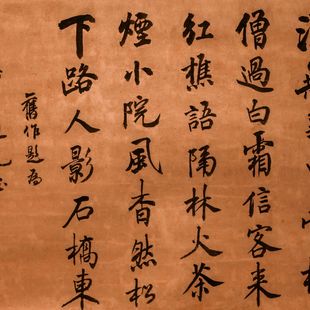 僧過白霜信客來
紅樵語隔林火茶
煙小院風杳然松
下路人影石橋東
舊作題為